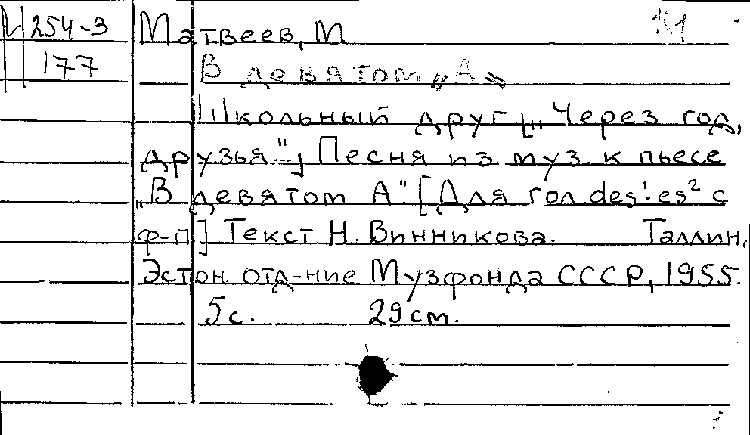 М 254-3
177
Матвеев, М
В девятом „А"
Школьный друг [„Через год,
друзья"] Песня из муз к пьесе
„В девятом А" [Для гол des¹-es² с
ф-п] Текст Н. Винникова. Таллин,
Эстон отд-ние Музфонда СССР, 1955.
5с. 29см.